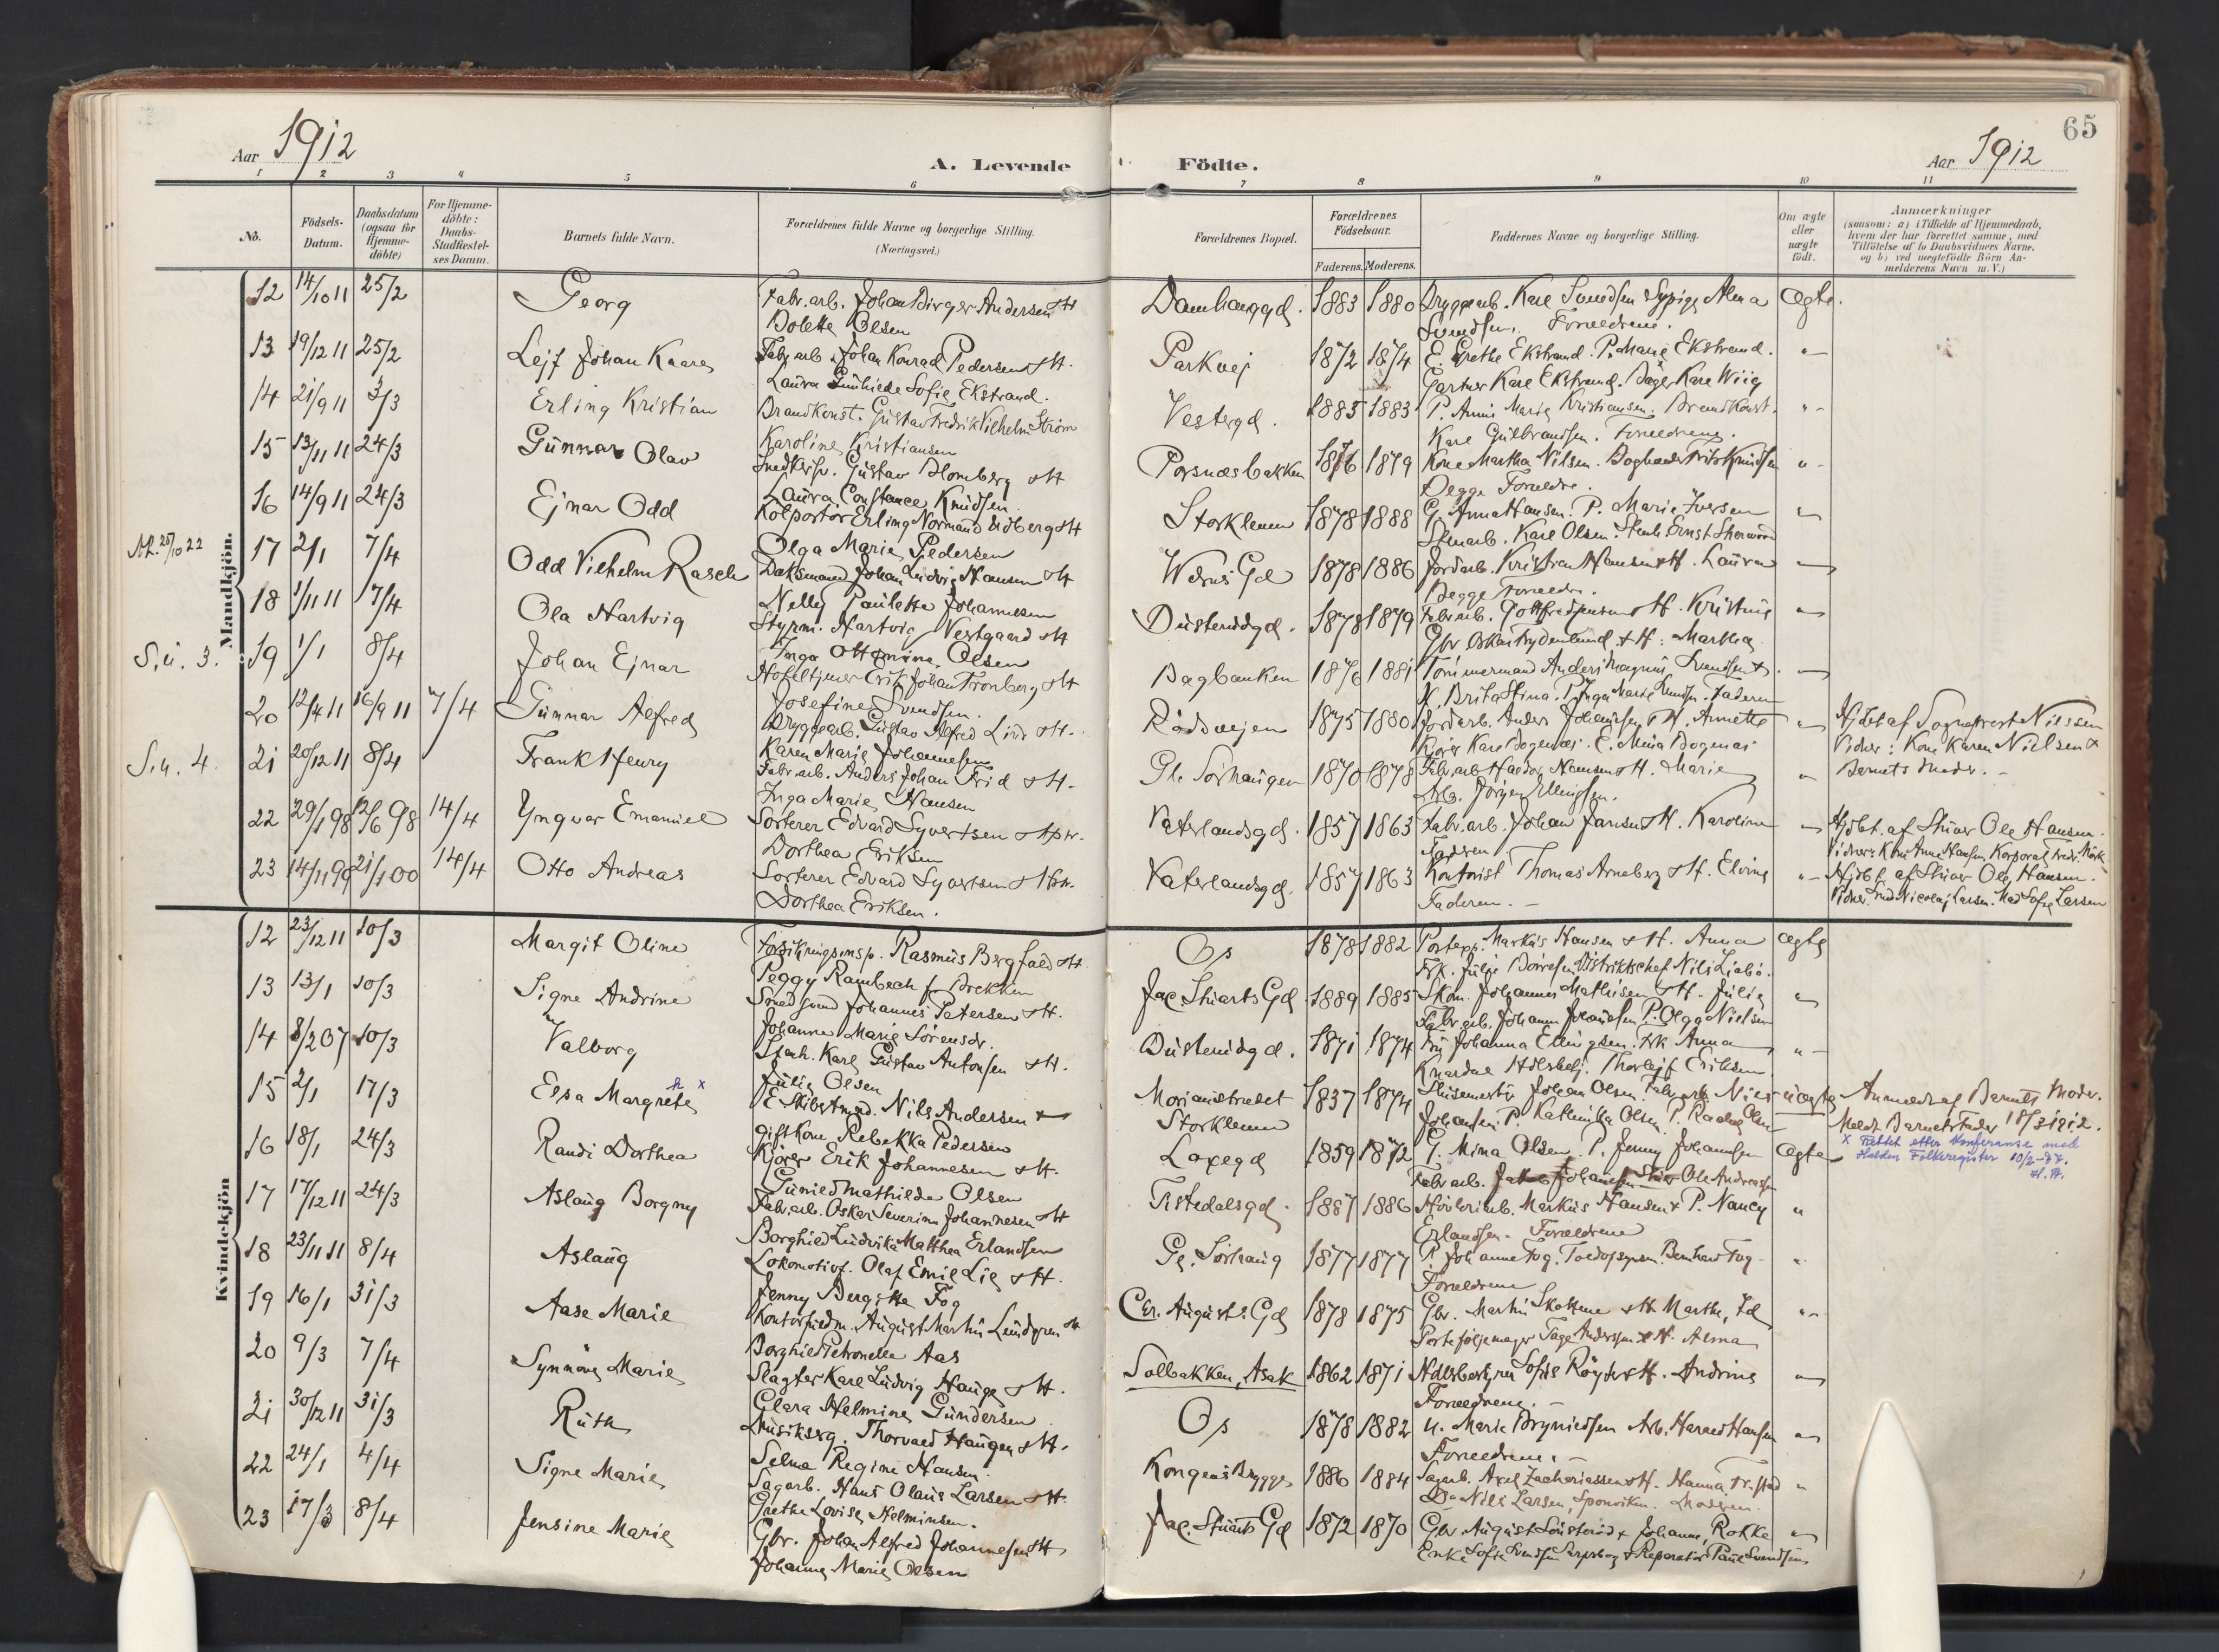 65
Aar 1912
A. Levende
Födte.
Aar 1912
1 2 3 4 5 6 7 8 9 10 11
No.
Födsels-
Datum.
Daabsdatum
(ogsaa for
Hjemme-
döbte)
For Hjemme-
döbte:
Daabs-
Stadfæstel-
ses Datum.
Barnets fulde Navn.
Forældrenes fulde Navne og borgerlige Stilling.
(Næringsvei.)
Forældrenes Bopæl.
Forældrenes
Födselsaar.
Faderens. Moderens.
Faddernes Navne og borgerlige Stilling.
Om ægte
eller
uægte
födt.
Anmærkninger
(saasom: a) i Tilfælde af Hjemmedaab,
hvem der har forrettet samme, med
Tilföielse af to Daabsvidners Navne,
og b) ved uægtefödte Börn An-
melderens Navn m. V.)
Mandkjön.
12 14/10 11 25/2 Georg Fabr.arb. Johan Birger Andersen & H
Bolette Olsen
Damhauggd. 1883 1880 Bryggearb. Karl Svendsen Sypige Alma
Svendsen. Forældrene.
Ægte.
13 19/12 11 25/2 Lejf Johan Kaare Fabr.arb. Johan Konrad Pedersen & H.
Laura Gunhilde Sofie Ekstrand.
Parkvej 1872 1874 E. Grethe Ekstrand. P. Marie Ekstrand.
Gartner Karl Ekstrand. Karl Wiig
14 21/9 11 3/3 Erling Kristian Brandkonst. Gustav Fredrik Vilhelm Strøm
Karoline Kristiansen
Vestergd. 1885 1883 P. Anni Marie Kristiansen. Brandkonst.
Karl Gulbrandsen. Forældrene.
15 13/11 11 24/3 Gunnar Olav Snedkersv. Gustav Blomberg & H
Laura Constance Knudsen
Porsnæsbakken 1876 1879 Kone Martha Nilsen. Fritz Knudsen
Begge Forældre.
16 14/9 11 24/3 Ejnar Odd Kolportör Erling Normann Edberg & H
Olga Marie Pedersen
Storklenen 1878 1888 G. Anna Hansen. P. Marie Iversen
Stenarb. Karl Olsen. Stenh. Ernst Sherwood
17 2/1 7/4 Odd Vilhelm Rasch Johan Ludvig Hansen & H
Nelly Paulette Johannesen
Gd 1878 1886 Jordarb. Kristian Hansen & H. Laura
Begge Forældre.
18 1/11 11 7/4 Ola Hartvig Styrm. Hartvig Vestgaard & H
Inga Ottomine Olsen
1878 1879 Fabr.arb. Gottfred Jensen & H. Kristine
Gbr Oskar Frydenlund & H: Martha
S.u. 3. 19 1/1 8/4 Johan Ejnar Hoteltjener Erik Johan Tronberg & H
Josefine Svendsen.
Bagbanken 1876 1881 Tömmermand Anders Magnus Svendsen &
H. Brita Stina. P. Inga Marie Svendsen. Faderen
20 12/4 11 16/9 11 7/4 Gunnar Alfred Bryggearb. Gustav Alfred Lind & H.
Karen Marie Johannesen
Rödsvejen 1875 1880 Jordarb. Anders Johansen & H. Annette
Kjører Karl Bogenæs. E. Mina Bogenæs
Hjdbt af Sogneprest Nilssen
Vidner: Kone Karen Nielsen &
Barnets Moder.
S.u. 4. 21 20/12 11 8/4 Frank Henry Fabr.arb. Anders Johan Frid & H.
Inga Marie Hansen
Gl. Sörhaugen 1870 1878 Fabr.arb Halvor Hansen & H. Marie
Arb. Jörgen Ellingsen.
22 29/1 98 12/6 98 14/4 Yngvar Emanuel Sorterer Edvard Syvertsen &
Dorthea Eriksen
Vaterlandsgd. 1857 1863 Fabr.arb. Johan Jansen & H. Karoline
Faderen
Hjdbt. af Skriver Ole Hansen.
Vidner: Kone Anne Hansen, Korporal Fredr. Mörk
23 14/11 99 21/1 00 14/4 Otto Andreas Sorterer Edvard Syvertsen &
Dorthea Eriksen.
Vaterlandsgd. 1857 1863 Kontorist Thomas Arneberg & H. Elvine
Faderen.
Hjdbt. af Skriver Ole Hansen.
Nicolaj Larsen. Mad. Sofie Larsen
Kvindekjön
12 23/12 11 10/3 Margit Oline Forsikringsinsp. Rasmus Bergfald & H
Peggy Rambech f. Brekken
Os 1878 1882 Postexp. Markus Hansen & H. Anna
Frk. Julie Distriktschef Nils Ljabö.
Ægte
13 13/1 10/3 Signe Andrine Smedsvend Johannes Petersen & H.
Johanne Marie Sörensdr.
Jac. Stuarts Gd. 1889 1885 Skom. Johannes Mathisen & H. Julie
Fabr.arb. P. Olga Nielsen
14 8/2 07 10/3 Valborg Stenh. Karl Gustav Antonsen & H.
Julie Olsen
1871 1874 Frk Johanna Ellingsen. Frk Anna
Thorlejf Eriksen
15 2/1 17/3 Elsa Margrete h x E. Skibstmd. Nils Andersen &
gift Kone Rebekka Pedersen
Morianstrædet
Storklenen
1837 1874 Slusemester Johan Olsen. Fabr.arb. Nils
Johansen P. Kathinka Olsen. P. Olsen
uægte Anmeldt af Barnets Moder.
Meldt Barnets Fader 18/3 1912.
x Rettet etter konferanse med
Halden Folkeregister 10/2-
16 18/1 24/3 Randi Dorthea Kjörer Erik Johannesen & H.
Gunild Mathilde Olsen
Laxegd 1859 1872 G. Mina Olsen. P. Jenny Johannesen
Fabr.arb. Ole Andreassen
Ægte
17 17/12 11 24/3 Aslaug Borgny Fabr.arb. Oskar Severin Johannesen & H
Borghild Ludvika Matthea Erlandsen
Tistedalsgd. 1887 1886 Markus Hansen & P. Nancy
Erlandsen. Forældrene
18 23/11 11 8/4 Aslaug Lokomotivf. Olaf Emil Lie & H.
Jenny Bergitte Fog
Gl. Sörhaug 1877 1877 P. Johanne Fog. Toldopsynsm. Bernhard Fog
Forældrene
19 16/1 31/3 Aase Marie Kontorfuldm. August Martin Lundgren & H
Borghild Petronelle Aas
Chr. Augusts Gd 1878 1875 Gbr. Martin Skottene & H Marthe, Id
Portefölje Tage Andersen & H. Alma
20 9/3 7/4 Synnöve Marie Slagter Karl Ludvig Hauge & H.
Clara Helmine Gundersen
Solbakken, Asak 1862 1871 Sofus Röyder & H. Andrine
Forældrene.
21 30/12 11 31/3 Ruth Musiksrg. Thorvald Haugen & H.
Selma Regine Hansen.
Os 1878 1882 U. Marie Brynildsen Arb. Harald Hansen
Forældrene.
22 24/1 4/4 Signe Marie Sagarb. Hans Olaus Larsen & H.
Grethe Lovise Helminsen.
Kongens Brygge 1886 1884 Sagarb. Axel Zachariassen & H. Hanna, Fr.stad
Do Nils Larsen, Sponviken. Moderen.
23 17/3 8/4 Jensine Marie Gbr. Johan Alfred Johannesen & H
Johanne Marie Olsen
Jac. Stuarts Gd 1872 1870 Gbr August & Johanne, Rokke
Enke Sofie Svendsen Sarpsborg & Reparatör Paul Svendsen